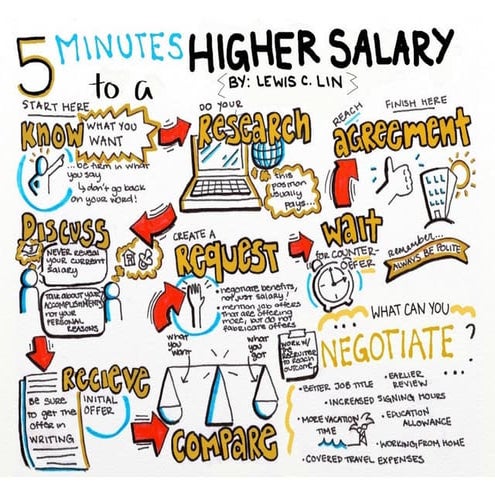 5 MINUTES
to a
HIGHER SALARY
BY: LEWIS C. LIN
START HERE
KNOW
WHAT YOU
WANT
...be firm in what
you say
↳ don't go back
on your word!
DO YOUR
RESEARCH
this
position
usually
pays...
DISCUSS
NEVER reveal
your current
salary
Talk about your
ACCOMPLISHMENTS
not your
PERSONAL
REASONS
RECIEVE
INITIAL
OFFER
BE SURE
to get the
offer in
WRITING
COMPARE
what
you
want
what
you
got
CREATE A
REQUEST
• negotiate benefits,
not just salary!
• mention job offers
that are offering
more, but do not
fabricate offers
WORK W/
the
RECRUITER
to reach
outcome
WAIT
for COUNTER-
OFFER
REACH
AGREEMENT
FINISH HERE
remember...
ALWAYS BE POLITE
WHAT CAN YOU
NEGOTIATE?
• BETTER JOB TITLE
• EARLIER
REVIEW
• INCREASED SIGNING HOURS
• MORE VACATION
TIME
• EDUCATION
ALLOWANCE
• WORKING FROM HOME
• COVERED TRAVEL EXPENSES